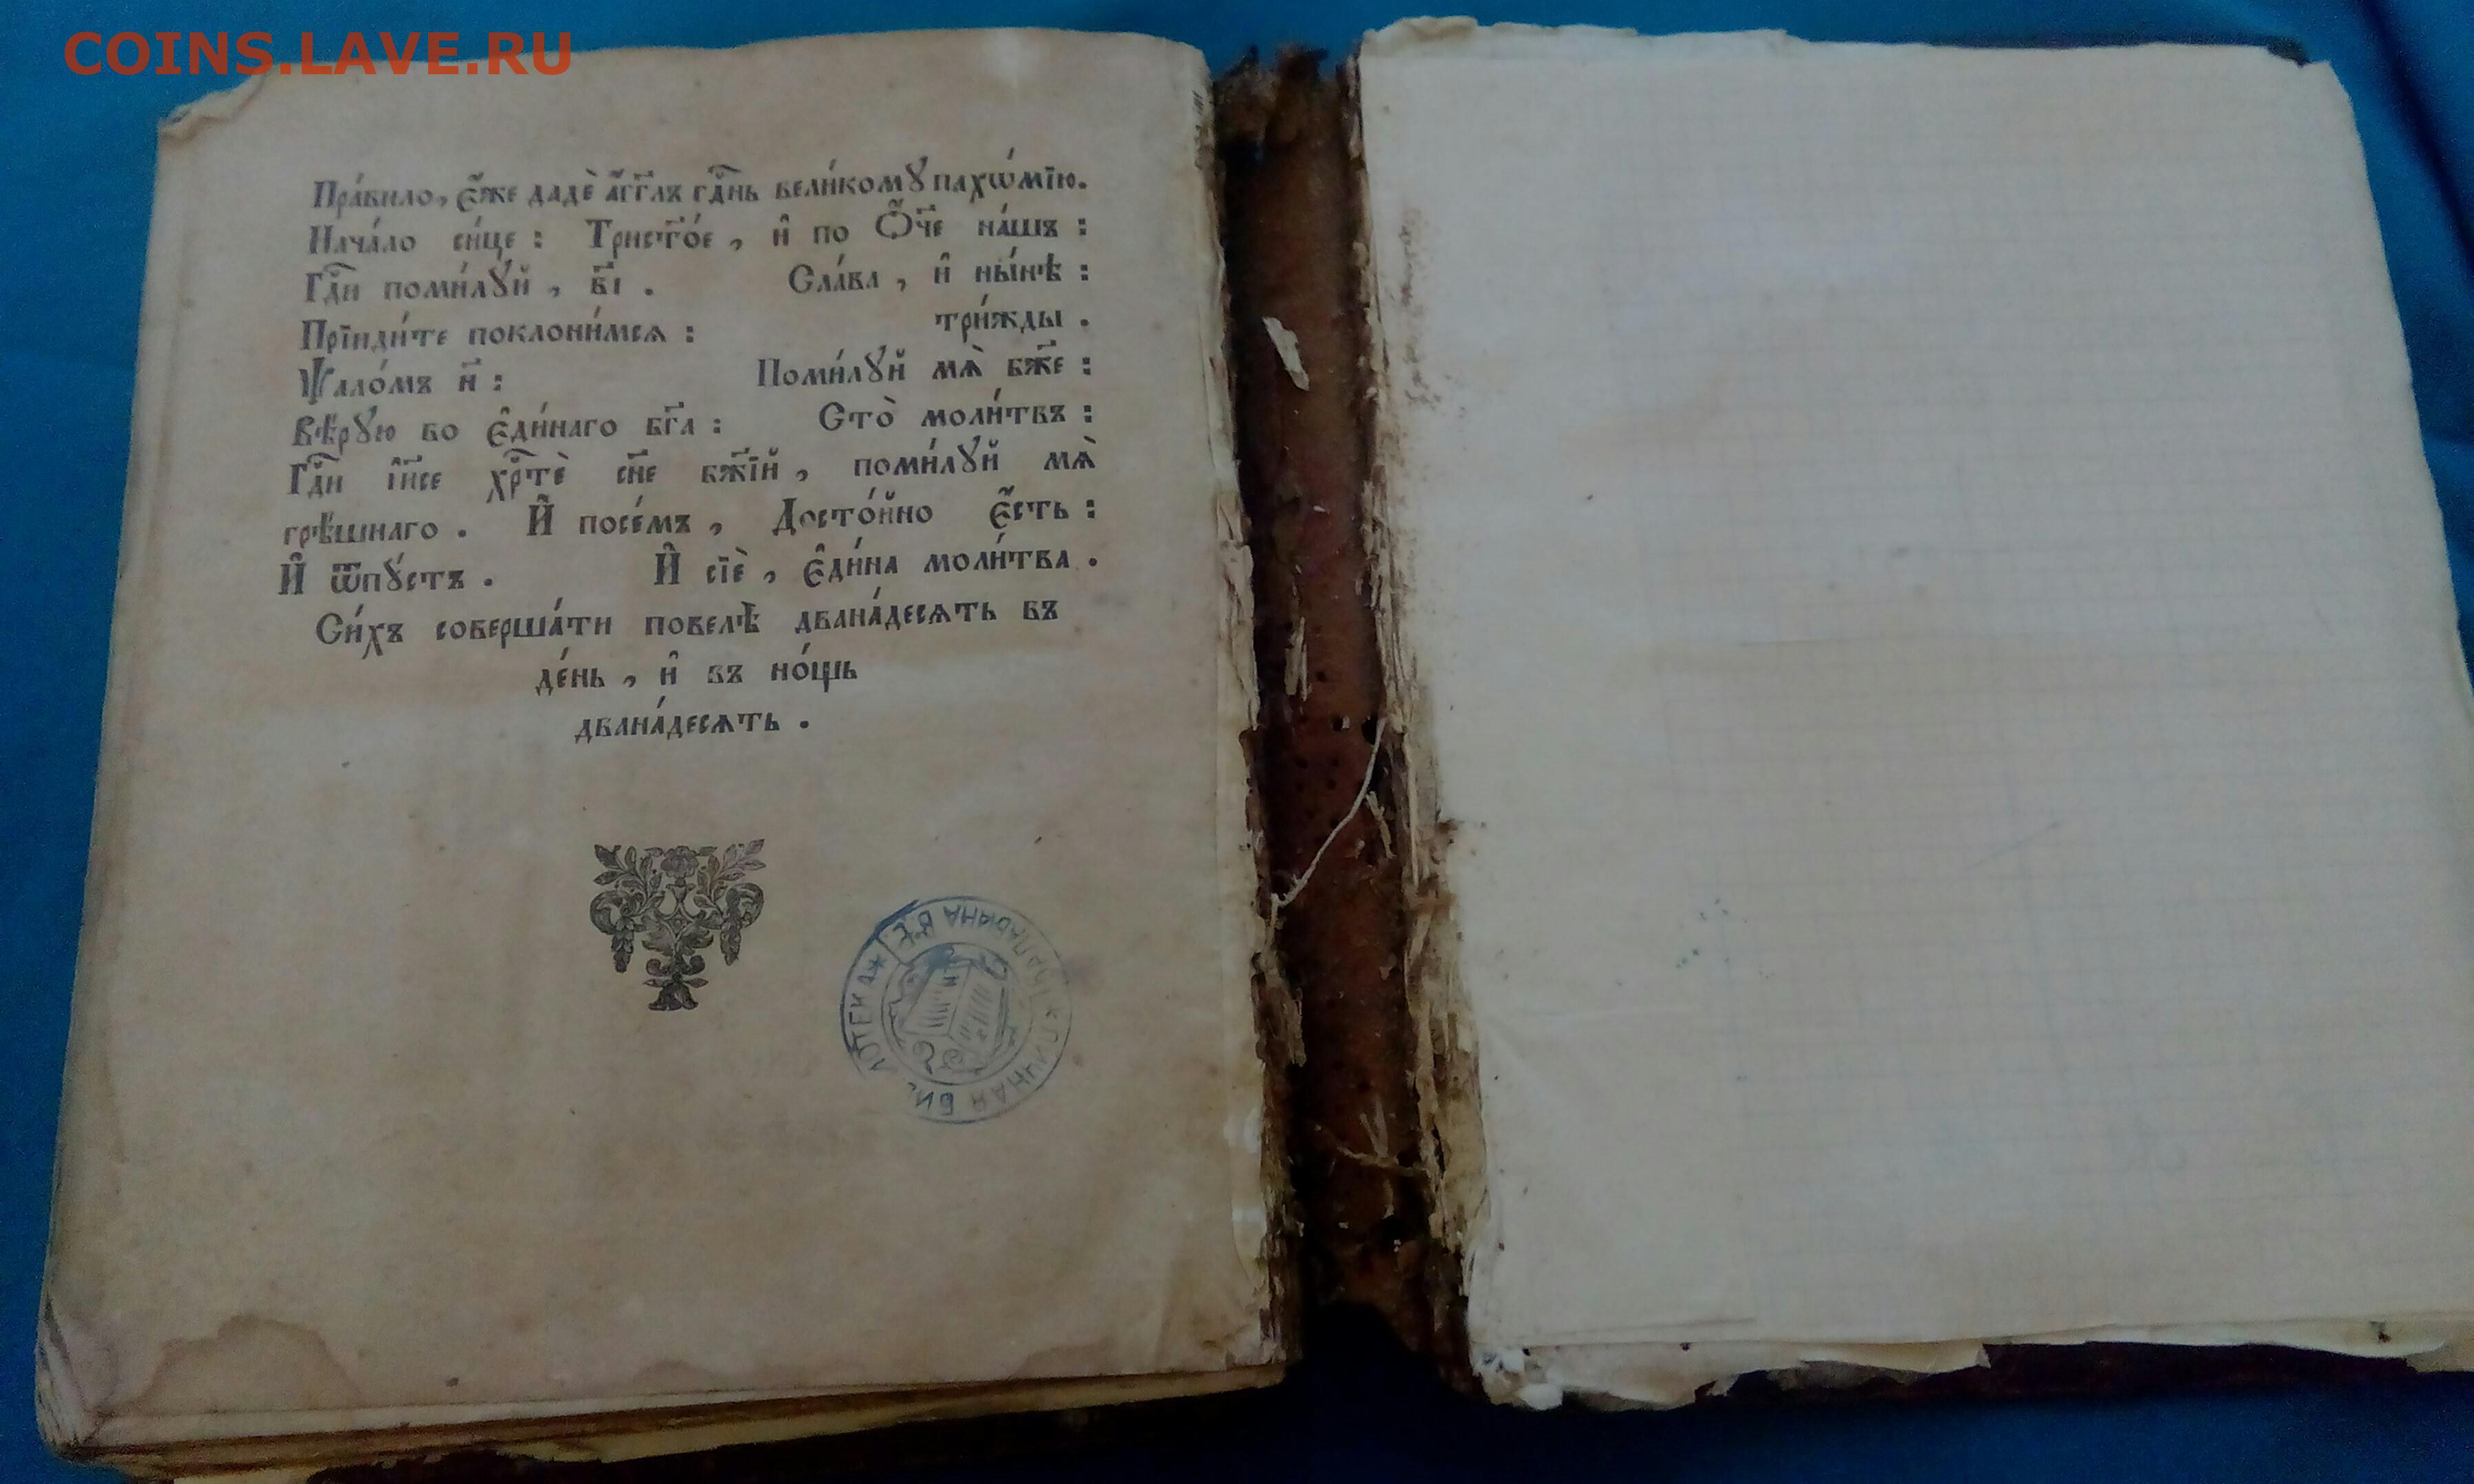 COINS.LAVE.RU
Пра́вило, є҆́же дадѐ а҆́гг҃лъ гдⷭ҇нь вели́комꙋ пахѡ́мїю.
Нача́ло си́це : Трист҃о́е , и҆ по Ѻ҆́ч҃е на́шъ :
Гдⷭ҇и поми́лꙋй , в҃і . Сла́ва , и҆ ны́нѣ :
Прїиди́те поклони́мсѧ : три́жды .
Ѱало́мъ н҃ : Поми́лꙋй мѧ̀ бж҃е :
Вѣ́рꙋю во є҆ди́наго бг҃а : Сто̀ моли́твъ :
Гдⷭ҇и і҆и҃се хрⷭ҇тѐ сн҃е бж҃їй , поми́лꙋй мѧ̀
грѣ́шнаго . И҆ посе́мъ , Досто́йно є҆́сть :
И҆ ѿпꙋ́стъ . И҆ сїѐ , є҆ди́на моли́тва .
Си́хъ соверша́ти повелѣ̀ двана́десѧть въ
де́нь , и҆ въ но́щь
двана́десѧть .